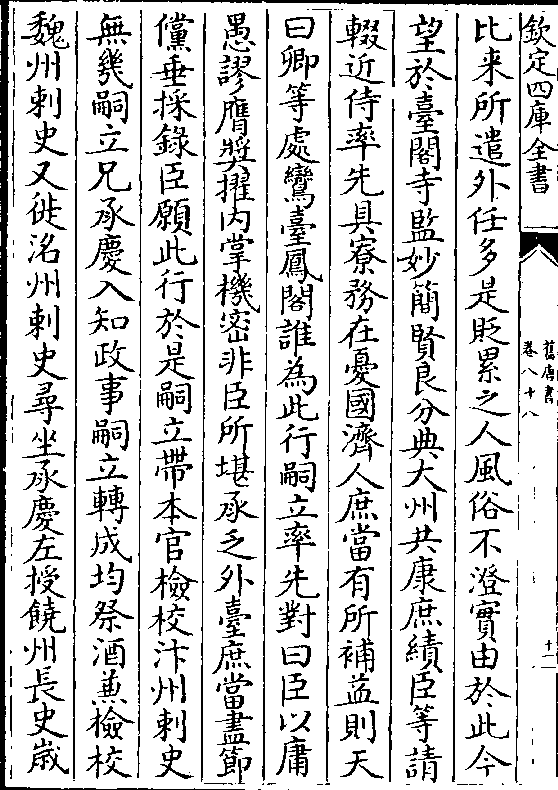 欽定四庫全書
舊唐書
卷八十八
十一
比来所遣外任多是貶累之人風俗不澄實由於此今
望於臺閣寺監妙簡賢良分典大州共康庶績臣等請
輟近侍率先具寮務在憂國濟人庶當有所補益則天
曰卿等處鸞臺鳳閣誰為此行嗣立率先對曰臣以庸
愚謬膺奬擢内掌機密非臣所堪承乏外臺庶當盡節
儻垂採錄臣願此行於是嗣立帶本官檢校汴州刺史
無幾嗣立兄承慶入知政事嗣立轉成均祭酒兼檢校
魏州刺史又徙洺州刺史尋坐承慶左授饒州長史歲